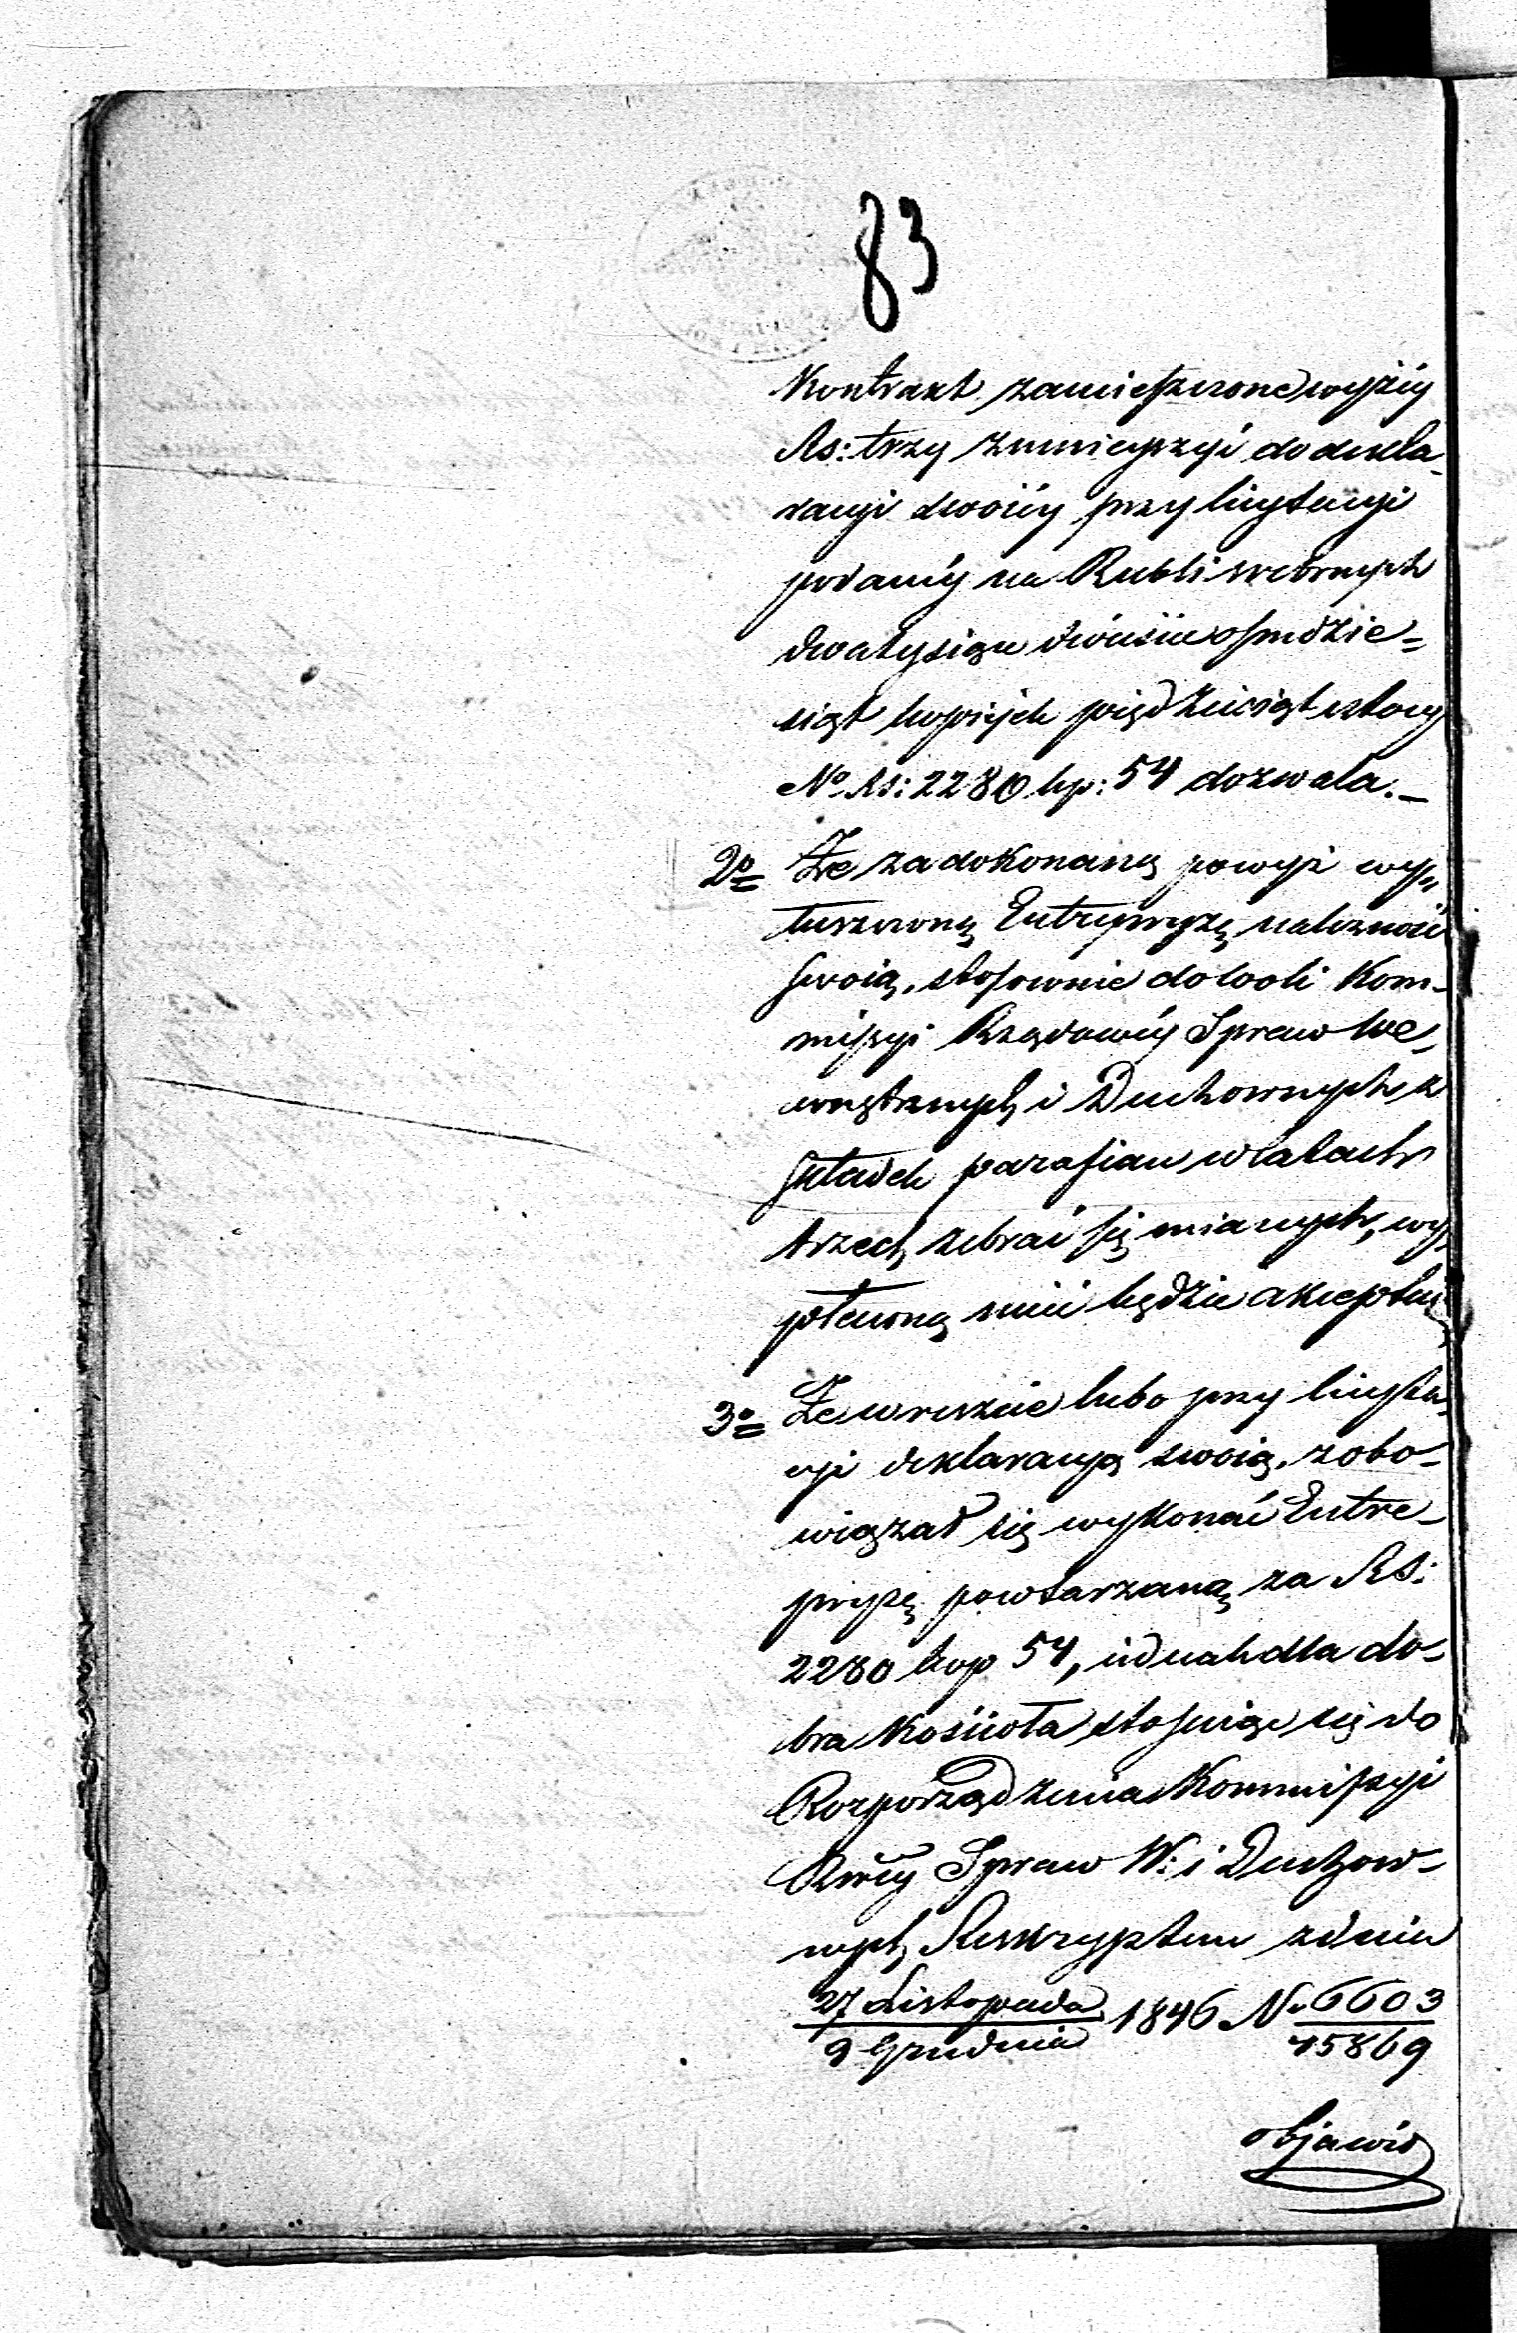 83
Kontrakt zamieszczone wyżéy
Rs: trzy zmnieyszyć do dekla-
racyi swoiéy przy licytacyi
podanéy na Rubli srebrnych
dwa tysiące dwieście ośmdzie-
siąt kopiejek pięćdziesiąt cztery
No Rs: 2280 kp: 54 dozwala.—
2o Że za dokonaną powyż wy-
łuszczoną Entrepryzę należność
swoią, stosownie do woli Kom-
missyi Rządowéy Spraw We-
wnętrznych i Duchownych z
składek parafian w latach
trzech zebrać się mianych, wy-
płaconą mieć będzie akceptuie
3o Że wreszcie lubo przy licyta-
cyi deklaracyą swoią, zobo-
wiązał się wykonać Entre-
pryzę powtarzaną za RS:
2280 kop 54, iednak dla do-
bra Kościoła stosuiąc się do
Rozporządzenia Kommissyi
Rwéy Spraw W: i Duchow-
nych Reskryptem z dnia
27 Listopada
9 Grudnia 1846 No 6603
15869
objawio